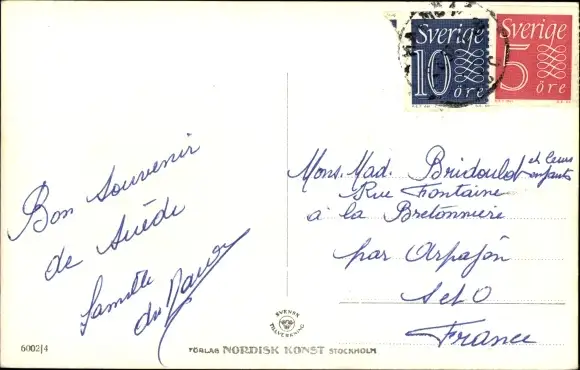 Sverige
10
öre
Sverige
5
öre
Bon Souvenir
de Suède
famille
Mons. Mad. Bridoulot et leurs enfants
Rue Fontaine
à la Bretonnière
par Arpajôn
S et O
France
SVENSK
TILLVERKNING
6002/4
FÖRLAG NORDISK KONST STOCKHOLM